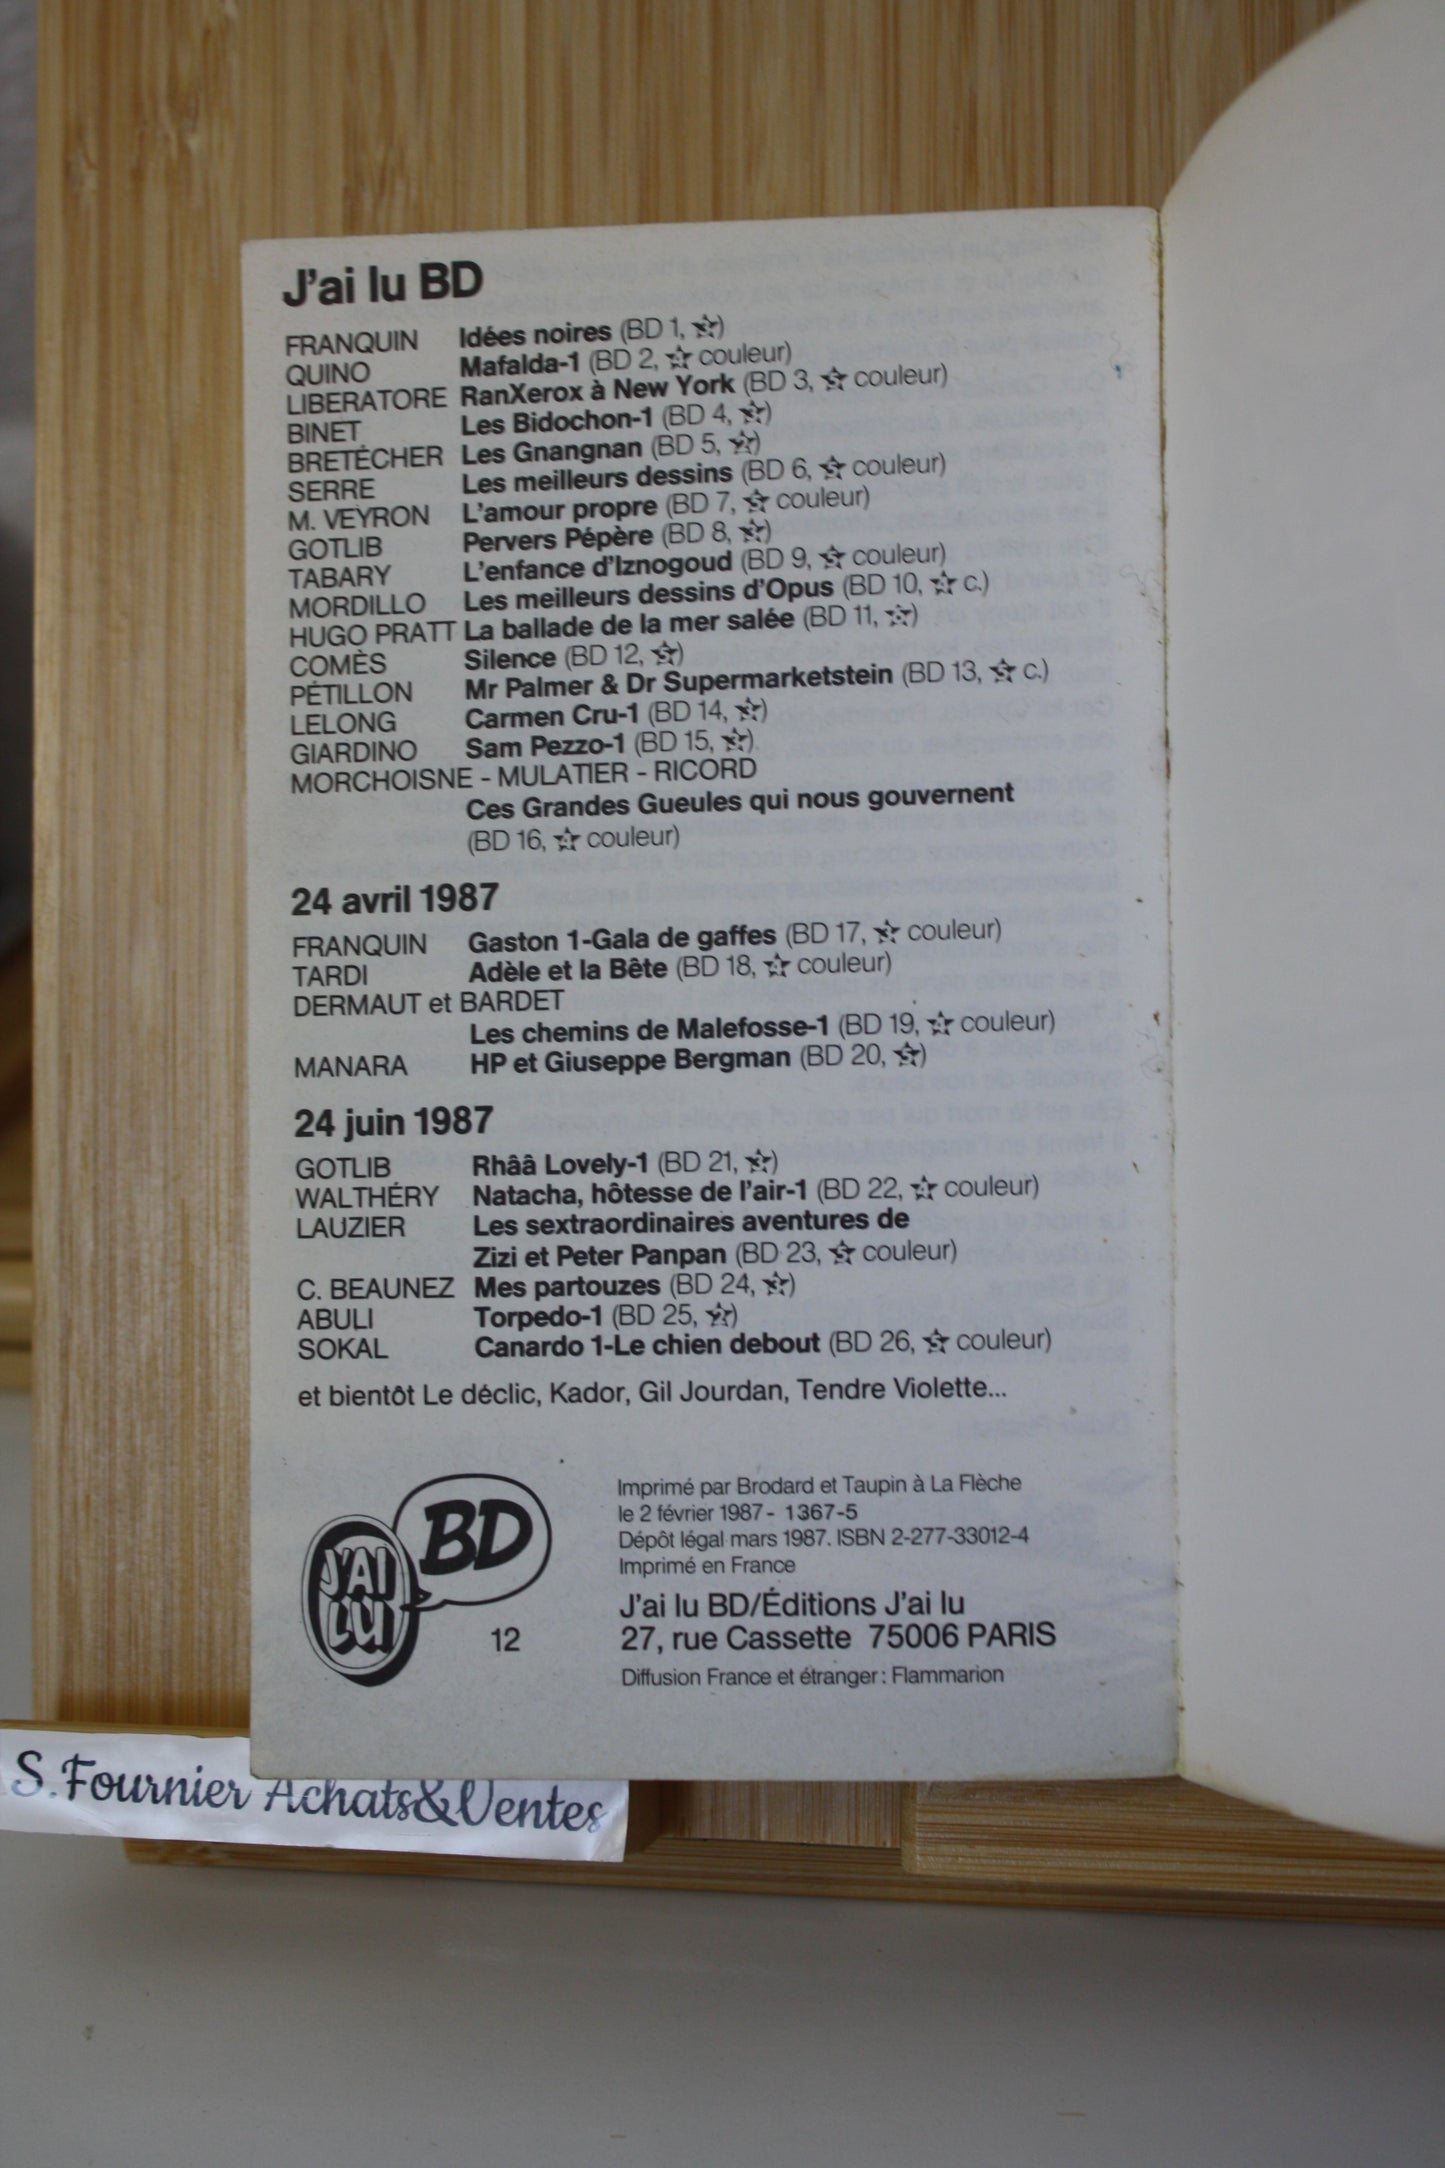 J'ai lu BD
FRANQUIN Idées noires (BD 1, ☆)
QUINO Mafalda-1 (BD 2, ☆ couleur)
LIBERATORE RanXerox à New York (BD 3, ☆ couleur)
BINET Les Bidochon-1 (BD 4, ☆)
BRETÉCHER Les Gnangnan (BD 5, ☆)
SERRE Les meilleurs dessins (BD 6, ☆ couleur)
M. VEYRON L'amour propre (BD 7, ☆ couleur)
GOTLIB Pervers Pépère (BD 8, ☆)
TABARY L'enfance d'Iznogoud (BD 9, ☆ couleur)
MORDILLO Les meilleurs dessins d'Opus (BD 10, ☆ c.)
HUGO PRATT La ballade de la mer salée (BD 11, ☆)
COMÈS Silence (BD 12, ☆)
PÉTILLON Mr Palmer & Dr Supermarketstein (BD 13, ☆ c.)
LELONG Carmen Cru-1 (BD 14, ☆)
GIARDINO Sam Pezzo-1 (BD 15, ☆)
MORCHOISNE - MULATIER - RICORD
Ces Grandes Gueules qui nous gouvernent
(BD 16, ☆ couleur)
24 avril 1987
FRANQUIN Gaston 1-Gala de gaffes (BD 17, ☆ couleur)
TARDI Adèle et la Bête (BD 18, ☆ couleur)
DERMAUT et BARDET
Les chemins de Malefosse-1 (BD 19, ☆ couleur)
MANARA HP et Giuseppe Bergman (BD 20, ☆)
24 juin 1987
GOTLIB Rhââ Lovely-1 (BD 21, ☆)
WALTHÉRY Natacha, hôtesse de l'air-1 (BD 22, ☆ couleur)
LAUZIER Les sextraordinaires aventures de
Zizi et Peter Panpan (BD 23, ☆ couleur)
C. BEAUNEZ Mes partouzes (BD 24, ☆)
ABULI Torpedo-1 (BD 25, ☆)
SOKAL Canardo 1-Le chien debout (BD 26, ☆ couleur)
et bientôt Le déclic, Kador, Gil Jourdan, Tendre Violette...
BD
J'AI
LU
12
Imprimé par Brodard et Taupin à La Flèche
le 2 février 1987 - 1367-5
Dépôt légal mars 1987. ISBN 2-277-33012-4
Imprimé en France
J'ai lu BD/Éditions J'ai lu
27, rue Cassette 75006 PARIS
Diffusion France et étranger : Flammarion
S.Fournier Achats&Ventes